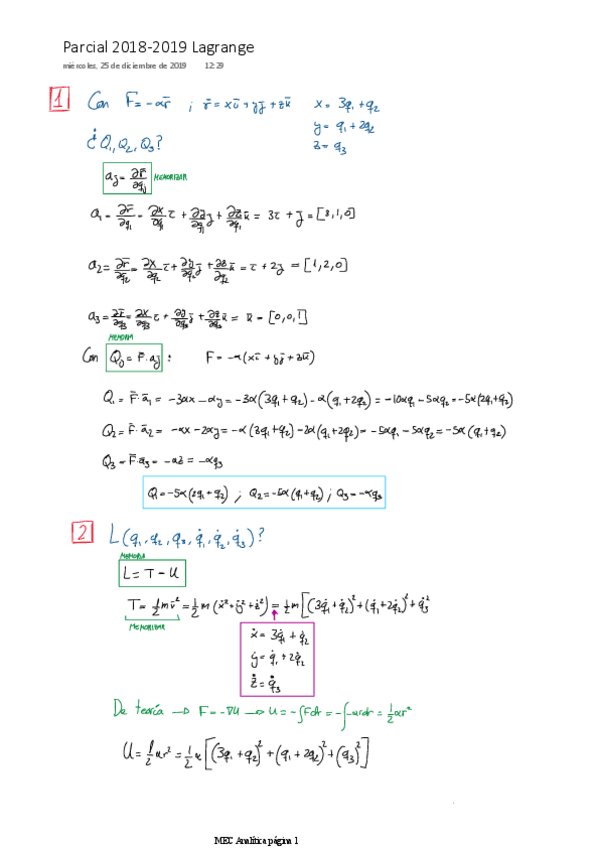 Parcial 2018-2019 Lagrange
miércoles, 25 de diciembre de 2019 12:29
1 Con F̄=-αr̄ ; r̄=xī+yj̄+zk̄ x=3q₁+q₂
y=q₁+2q₂
z=q₃
¿Q₁,Q₂,Q₃?
aⱼ=∂r̄/∂qⱼ MEMORIZAR
a₁=∂r̄/∂q₁=∂x/∂q₁ ī+∂y/∂q₁ j̄+∂z/∂q₁ k̄=3ī+j̄=[3,1,0]
a₂=∂r̄/∂q₂=∂x/∂q₂ ī+∂y/∂q₂ j̄+∂z/∂q₂ k̄=ī+2j̄=[1,2,0]
a₃=∂r̄/∂q₃=∂x/∂q₃ ī+∂y/∂q₃ j̄+∂z/∂q₃ k̄=k̄=[0,0,1]
MEMORIA
Con Qⱼ=F̄·aⱼ : F=-α(xī+yj̄+zk̄)
Q₁=F̄·ā₁=-3αx-αy=-3α(3q₁+q₂)-α(q₁+2q₂)=-10αq₁-5αq₂=-5α(2q₁+q₂)
Q₂=F̄·ā₂=-αx-2αy=-α(3q₁+q₂)-2α(q₁+2q₂)=-5αq₁-5αq₂=-5α(q₁+q₂)
Q₃=F̄·a₃=-αz=-αq₃
Q₁=-5α(2q₁+q₂) ; Q₂=-5α(q₁+q₂) ; Q₃=-αq₃
2 L(q₁,q₂,q₃,q̇₁,q̇₂,q̇₃)?
MEMORIA
L=T-U
T=½mv̄²=½m(ẋ²+ẏ²+ż²)=½m[(3q̇₁+q̇₂)²+(q̇₁+2q̇₂)²+q̇₃²
MEMORIZAR
ẋ=3q̇₁+q̇₂
ẏ=q̇₁+2q̇₂
ż=q̇₃
De teoría → F=-∇U → U=-∫Fdr=-∫-αrdr=½αr²
U=½αr²=½α[(3q₁+q₂)²+(q₁+2q₂)²+(q₃)²]
MEC Analítica página 1